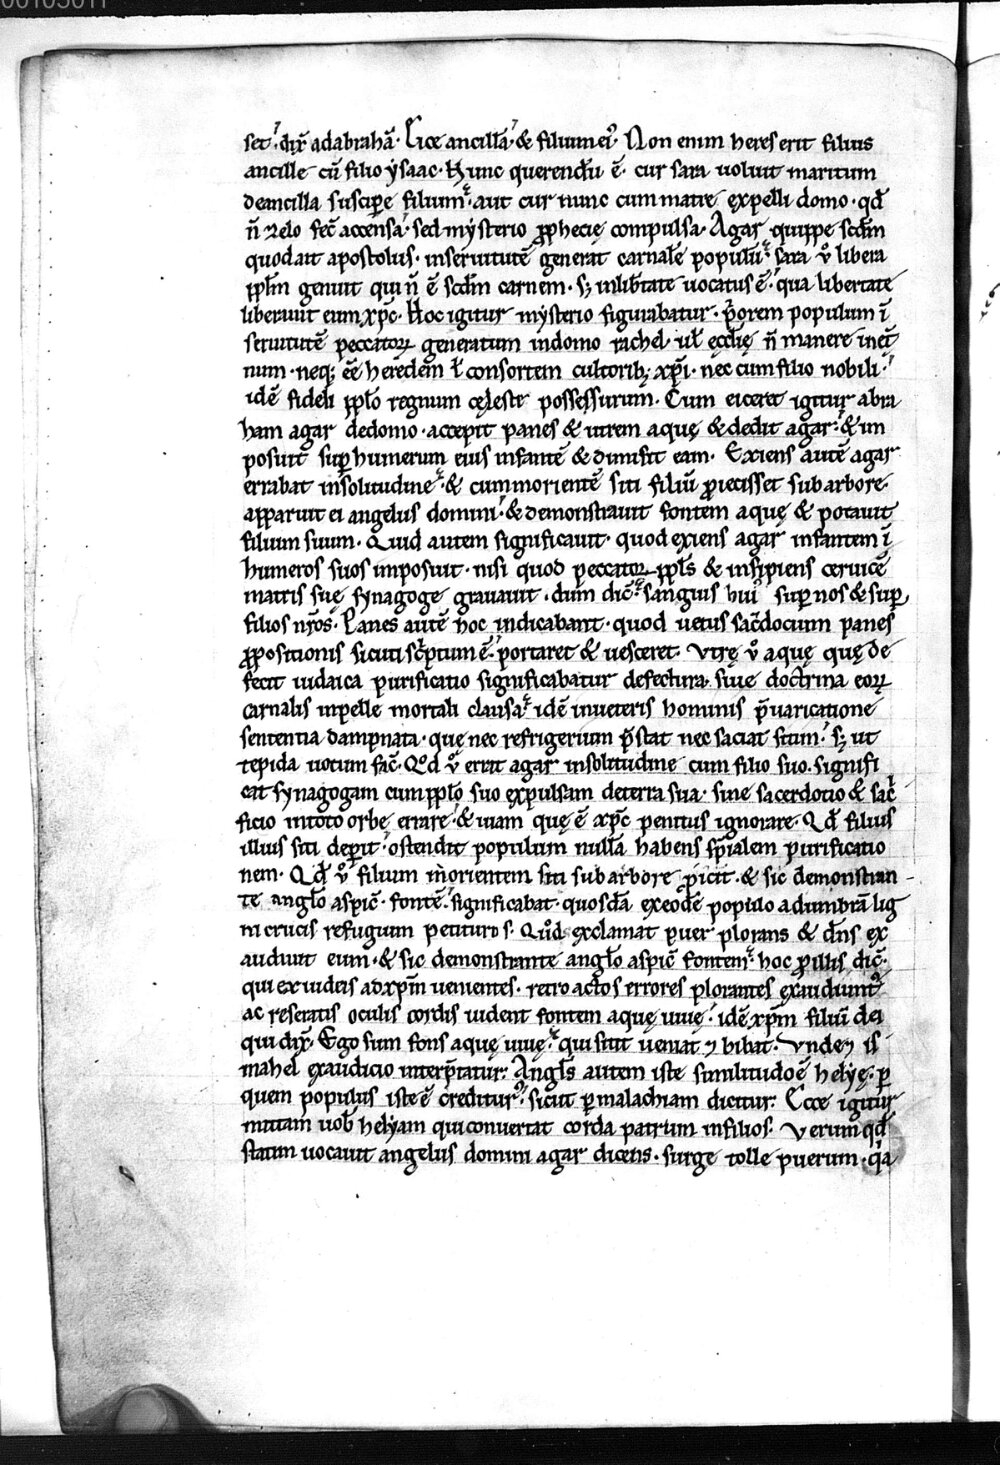 00105011
set. dix̄ ad abrahā. Eice ancillā. & filium ei᷒. Non enim heres erit filius
ancille cū filio ysaac. Hunc querendū ē. cur sara uoluit maritum
de ancilla suscipe filium. aut cur nunc cum matre expelli domo. qd̄
n̄ zelo fec̄ accensa. sed mysterio ꝓphecię compulsa. Agar quippe scd̄m
quod ait apostolus. in seruitutē generat carnalē populū. sara ů libera
ppl̄m genuit qui n̄ ē scd̄m carnem. sꝫ in lib̄tate uocatus ē. qua libertate
liberauit eum xp̄c. Hoc igitur mysterio figurabatur. p̄orem populum ī
seruitutē peccatoꝝ generatum in domo rachel. ul̄ ęcclię n̄ manere in et̄
num. neqꝫ eē heredem ł consortem cultoribꝫ xp̄i. nec cum filio nobili.
idē fideli ppl̄o regnum cęleste possessurum. Cum eiceret igitur abra
ham agar de domo. accepit panes & utrem aquę & dedit agar. & im
posuit sup humerum eius infantē & dimisit eam. Exiens autē agar
errabat in solitudine. & cum morientē siti filiū ꝓiecisset sub arbore.
apparuit ei angelus domini. & demonstrauit fontem aquę & potauit
filium suum. Quid autem significauit. quod exiens agar infantem ī
humeros suos imposuit. nisi quod peccator ppl̄s & insipiens ceruicē
matris suę synagoge grauauit. dum dic̄. sanguis hui᷒ sup nos & sup
filios nr̄os. Panes autē hoc indicabant. quod uetus sac̄docium panes
ꝓpositionis sicuti sc̄ptum ē. portaret & uesceret. Vtrę ů aquę quę de
fecit iudaica purificatio significabatur defectura. siue doctrina eoꝝ
carnalis in pelle mortali clausa. idē in ueteris hominis p̄uaricatione
sententia dampnata. quę nec refrigerium p̄stat nec saciat sitim. sꝫ ut
tepida uotum fac̄. Qd ů errat agar in solitudine cum filio suo. signifi
cat synagogam cum ppl̄o suo expulsam de terra sua. sine sacerdotio & sac̄
ficio in toto orbe errare. & uiam quę ē xp̄c penitus ignorare. Qd̄ filius
illius siti deperit. ostendit populum nullā habens sp̄ialem purificatio
nem. Qd̄ ů filium morientem siti sub arbore ꝓicit. & sic demonstran-
te anglo aspic̄ fontē. significabat. quosdā ex eodē populo ad umbrā lig
ni crucis refugium petituros. Quod exclamat puer plorans & dn̄s ex
audiuit eum. & sic demonstrante anglo aspic̄ fontem. hoc ꝓ illis dic̄.
qui ex iudeis ad xp̄m uenientes. retro actos errores plorantes exaudiunt᷒
ac reseratis oculis cordis uident fontem aquę uiuę. idē xp̄m filiū dei
qui dix̄. Ego sum fons aquę uiuę. qui sitit ueniat ⁊ bibat. Vnde ⁊ is
mahel exaudicio interp̄tatur. Angl̄s autem iste similitudo ē helyę. ꝑ
quem populus iste ē creditur᷒. sicut ꝑ malachiam dicitur. Ecce igitur
mittam uob̄ helyam qui conuertat corda patrum in filios. Verum qd̄
statim uocauit angelus domini agar dicens. surge tolle puerum. q̄a